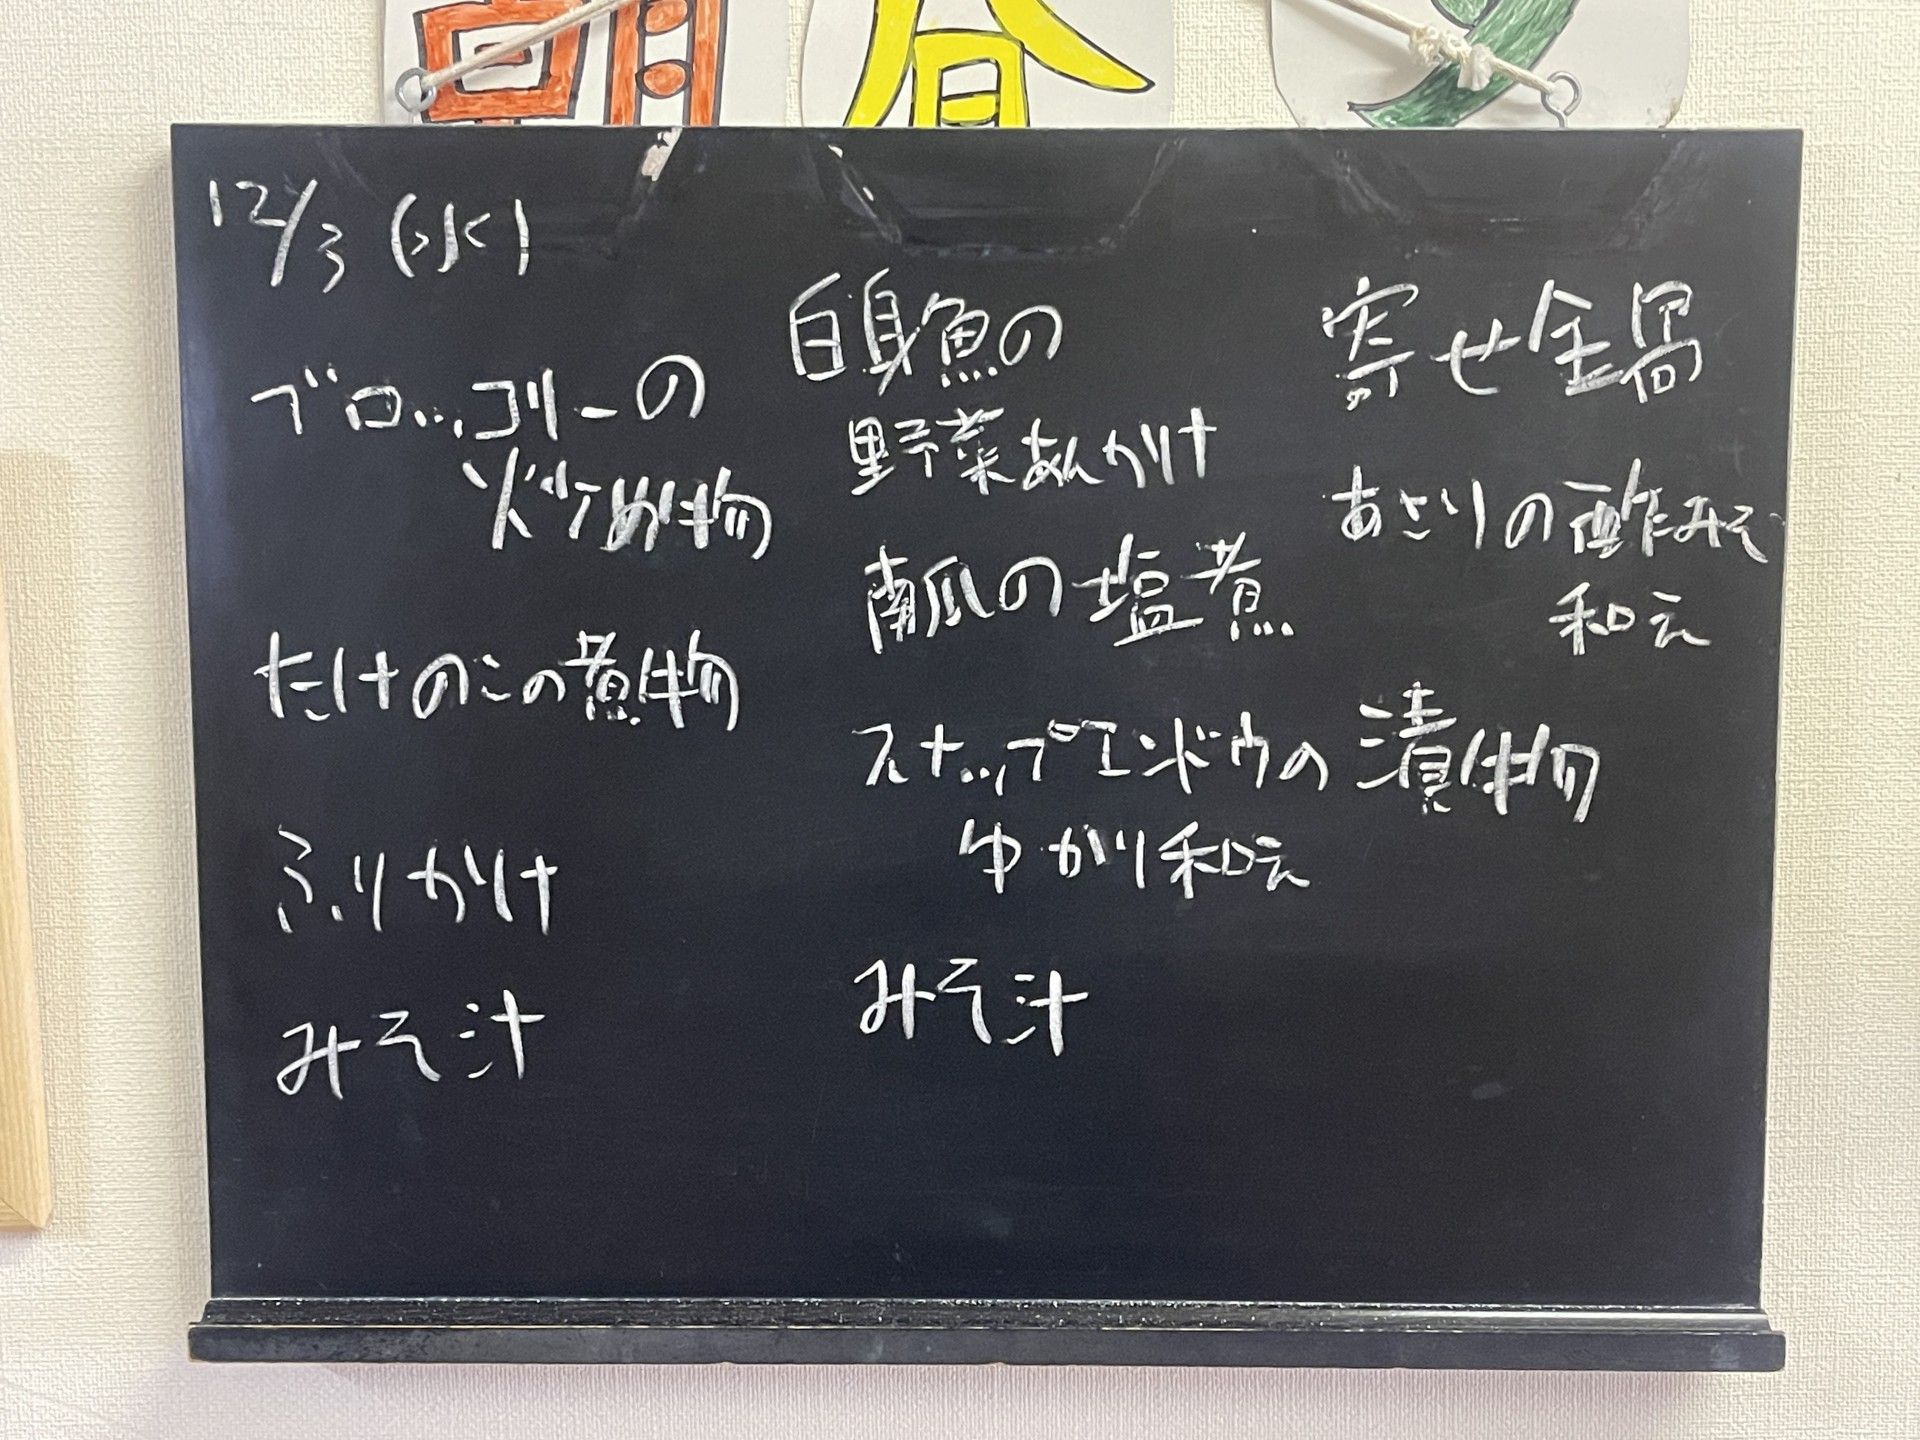 朝
昼
夕
12/3(水)
ブロッコリーの
炒め物
たけのこの煮物
ふりかけ
みそ汁
白身魚の
野菜あんかけ
南瓜の塩煮
スナップエンドウの
ゆかり和え
みそ汁
寄せ鍋
あさりの酢みそ
和え
漬物